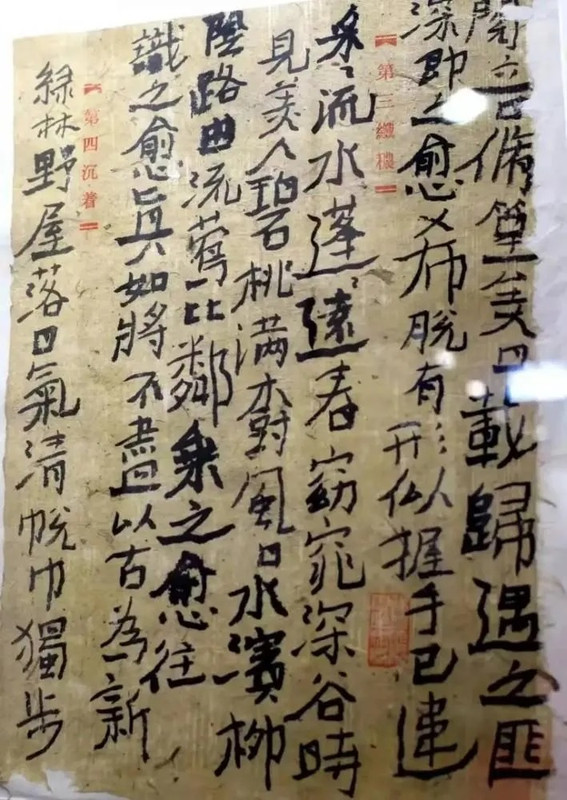 閱音脩篁美曰載歸遇之匪
深即之愈希脫有形似握手已違
第三纖穠
采〻流水蓬〻遠春窈窕深谷時
見美人碧桃滿樹風日水濱柳
陰路曲流鶯比鄰乘之愈往
識之愈眞如將不盡以古為新
第四沉着
綠林野屋落日氣清帨巾獨步